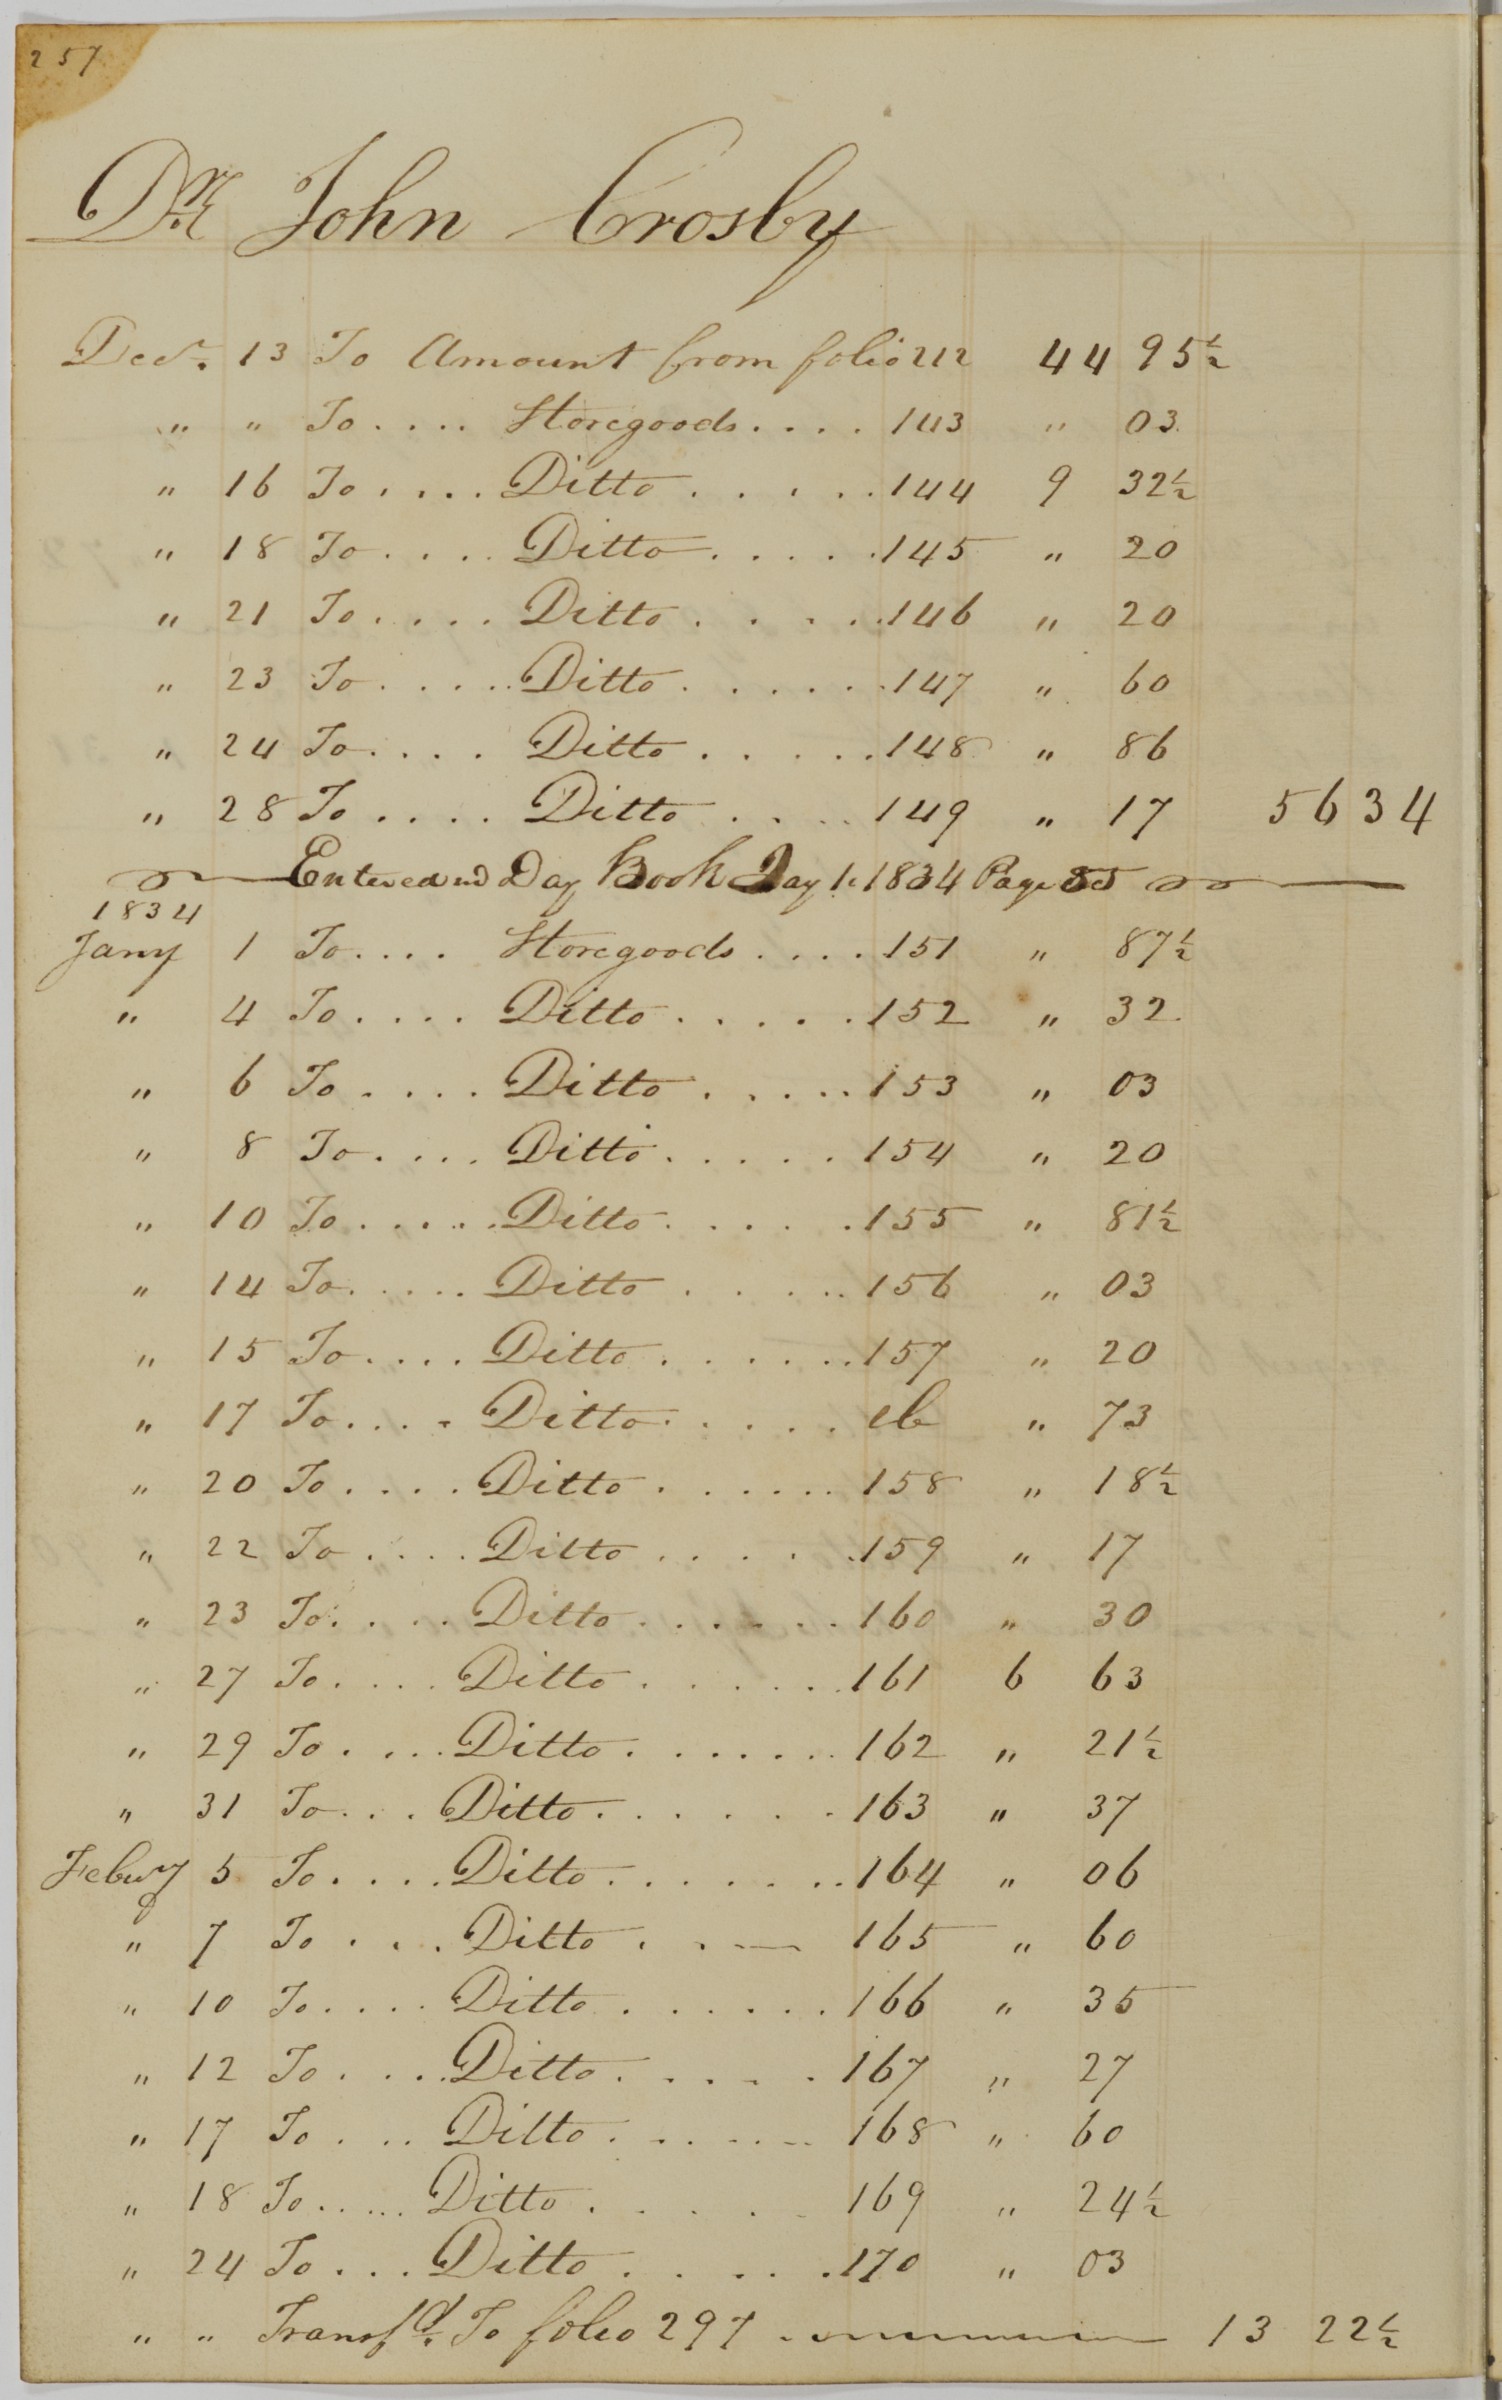 257
Dr John Crosby
Decr. 13 To Amount from folio 212 44 95½
" " To .... Storegoods .... 143 " 03
" 16 To .... Ditto ..... 144 9 32½
" 18 To .... Ditto ..... 145 " 20
" 21 To .... Ditto ..... 146 " 20
" 23 To ..... Ditto ...... 147 " 60
" 24 To .... Ditto ..... 148 " 86
" 28 To .... Ditto .... 149 " 17 56 34
Entered in Day Book Jay 1. 1834 Page 85
1834
Jany 1 To .... Storegoods .... 151 " 87½
" 4 To .... Ditto ..... 152 " 32
" 6 To .... Ditto ..... 153 " 03
" 8 To .... Ditto ..... 154 " 20
" 10 To ..... Ditto ..... 155 " 81½
" 14 To ..... Ditto ..... 156 " 03
" 15 To .... Ditto ...... 157 " 20
" 17 To .... Ditto ..... ib " 73
" 20 To .... Ditto ...... 158 " 18½
" 22 To .... Ditto ..... 159 " 17
" 23 To .... Ditto ...... 160 " 30
" 27 To .... Ditto ...... 161 6 63
" 29 To .... Ditto ...... 162 " 21½
" 31 To ... Ditto ...... 163 " 37
Febury 5 To .... Ditto ....... 164 " 06
" 7 To ... Ditto . . — 165 " 60
" 10 To .... Ditto ...... 166 " 35
" 12 To .... Ditto ..... 167 " 27
" 17 To ... Ditto ...... 168 " 60
" 18 To ..... Ditto ..... 169 " 24½
" 24 To ... Ditto ..... 170 " 03
" " Transfd. To folio 297 13 22½